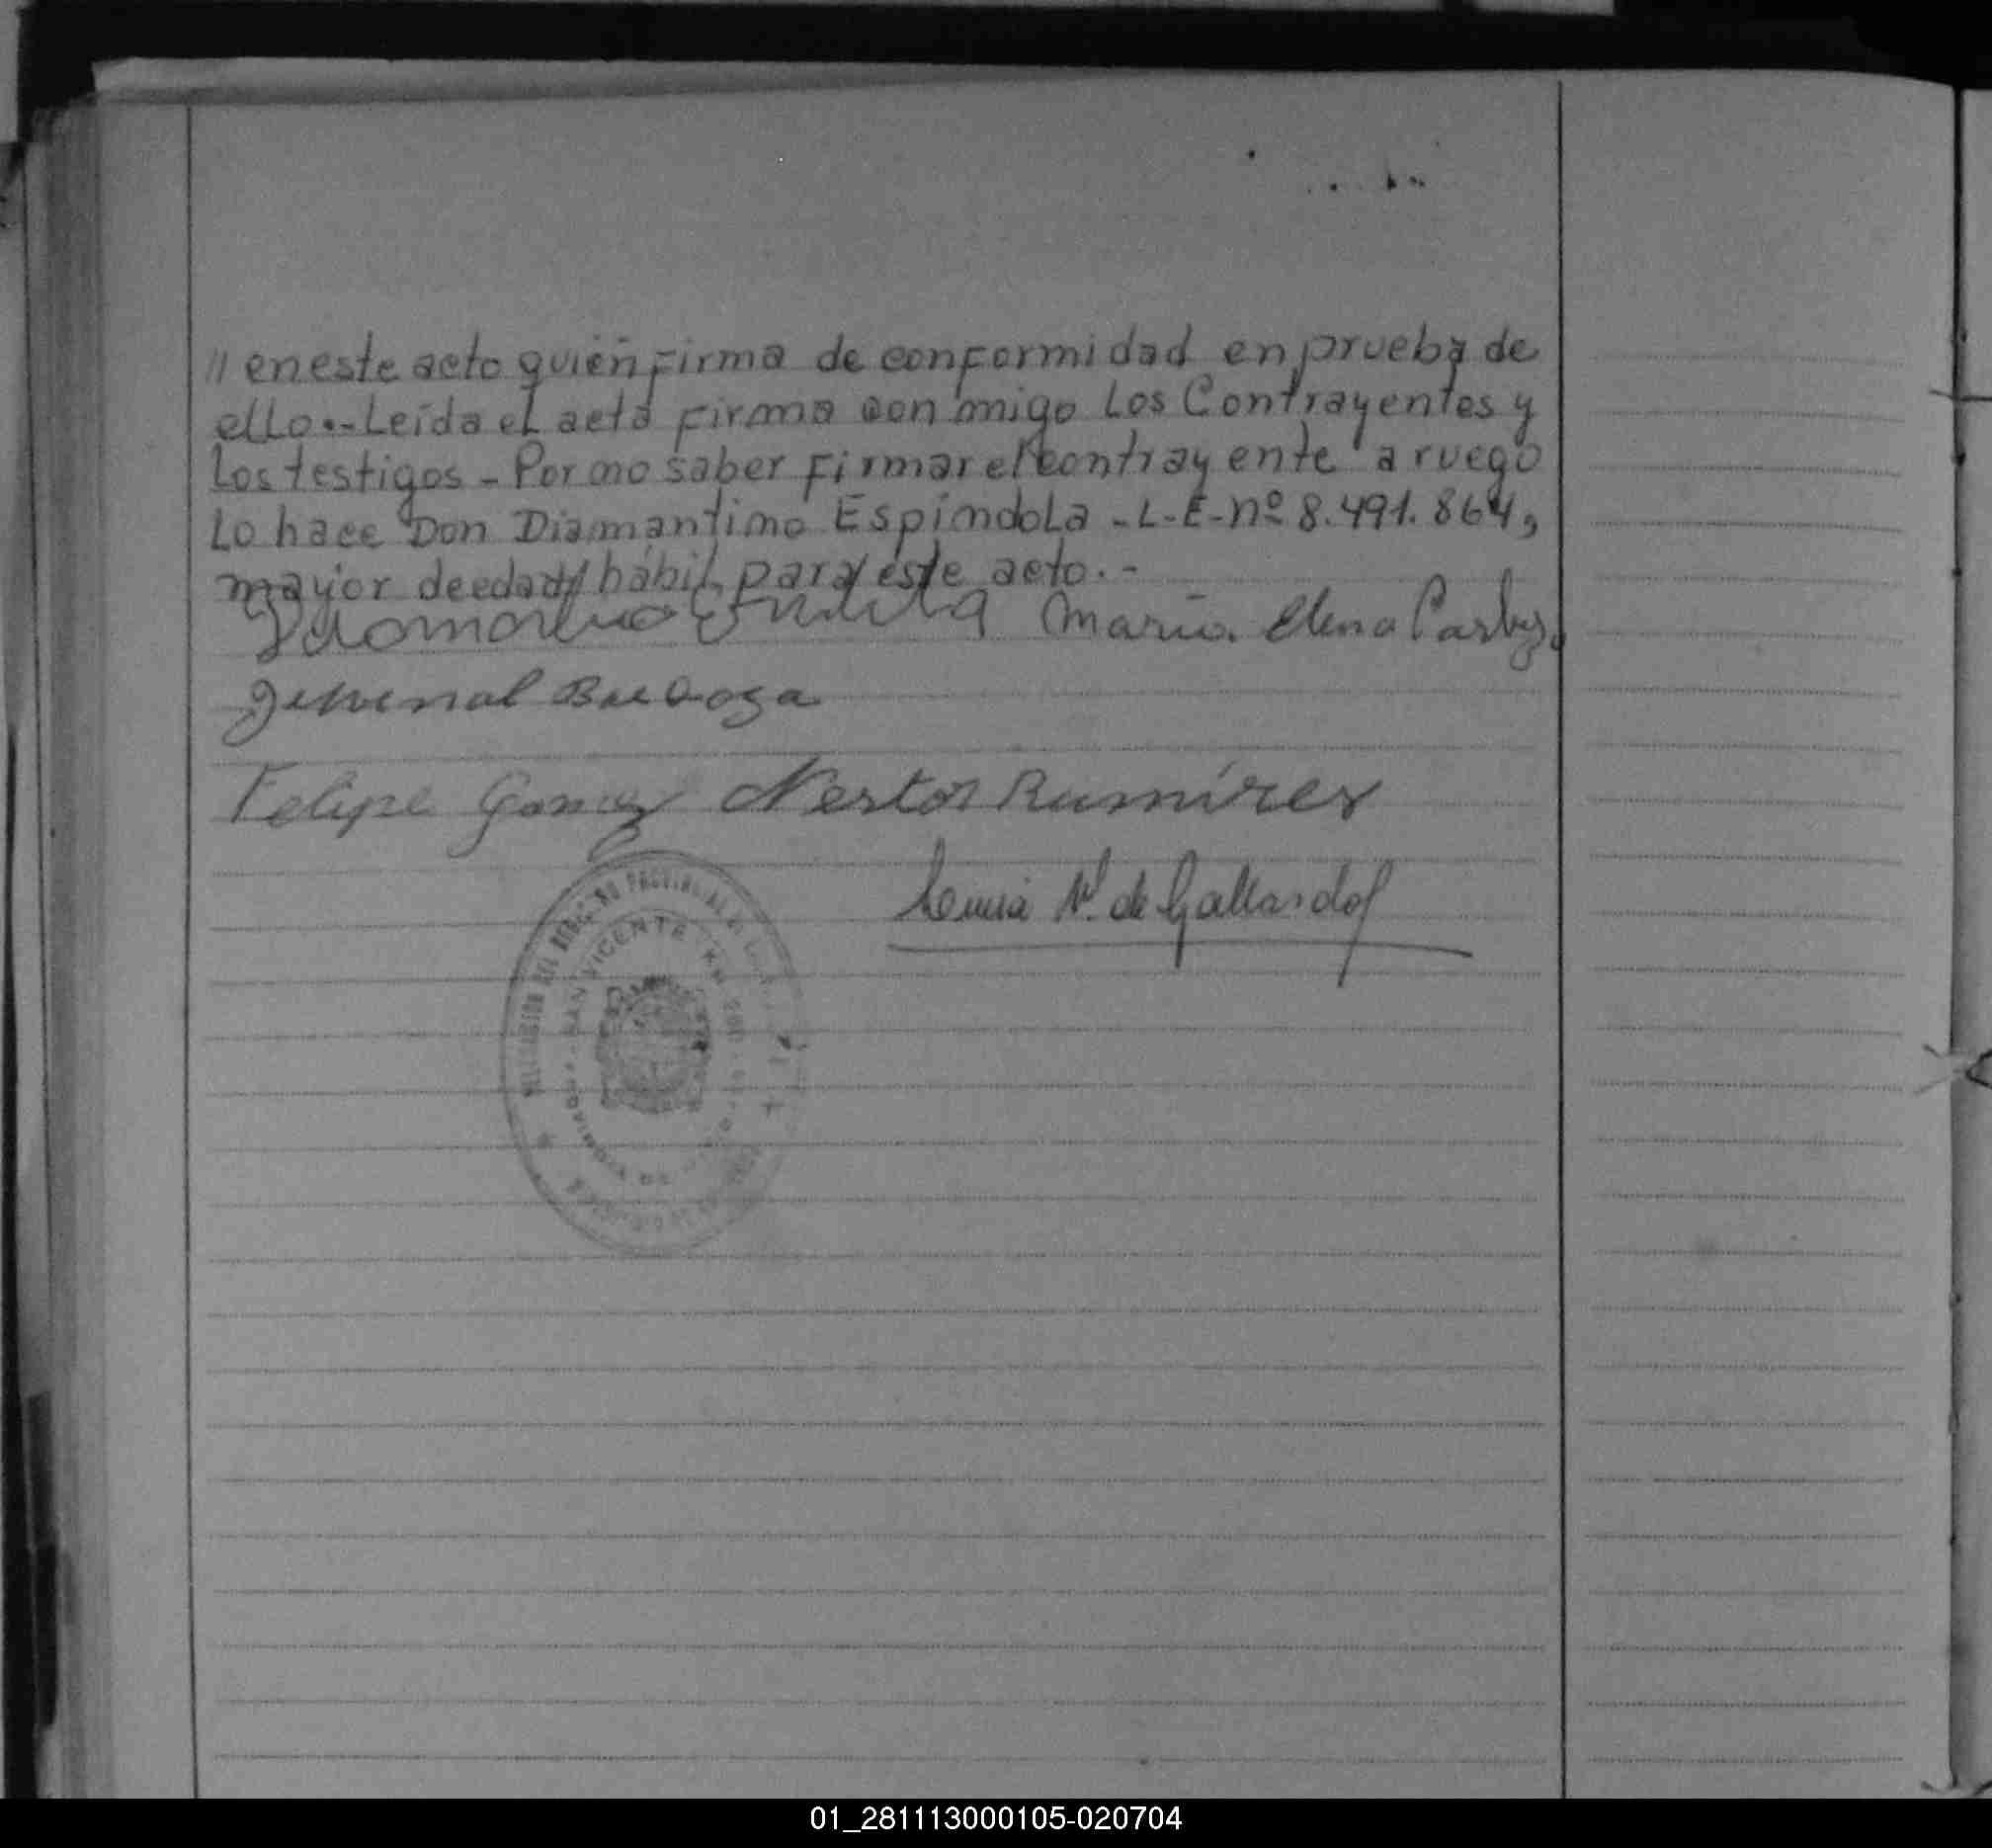 // en este acto quién firma de conformidad en prueba de
ello.- Leída el acta firma con migo Los Contrayentes y
Los testigos - Por no saber firmar el contrayente a ruego
Lo hace Don Diamantino Espíndola - L-E-nº 8.491.864,
mayor de edad hábil para este acto.-
Maria Elena
Juvenal Barboza
Felipe Gomez Nestor Ramires
N. de Gallardo
DELEGACION DEL REGISTRO PROVINCIAL DE LAS
SAN VICENTE
01_281113000105-020704